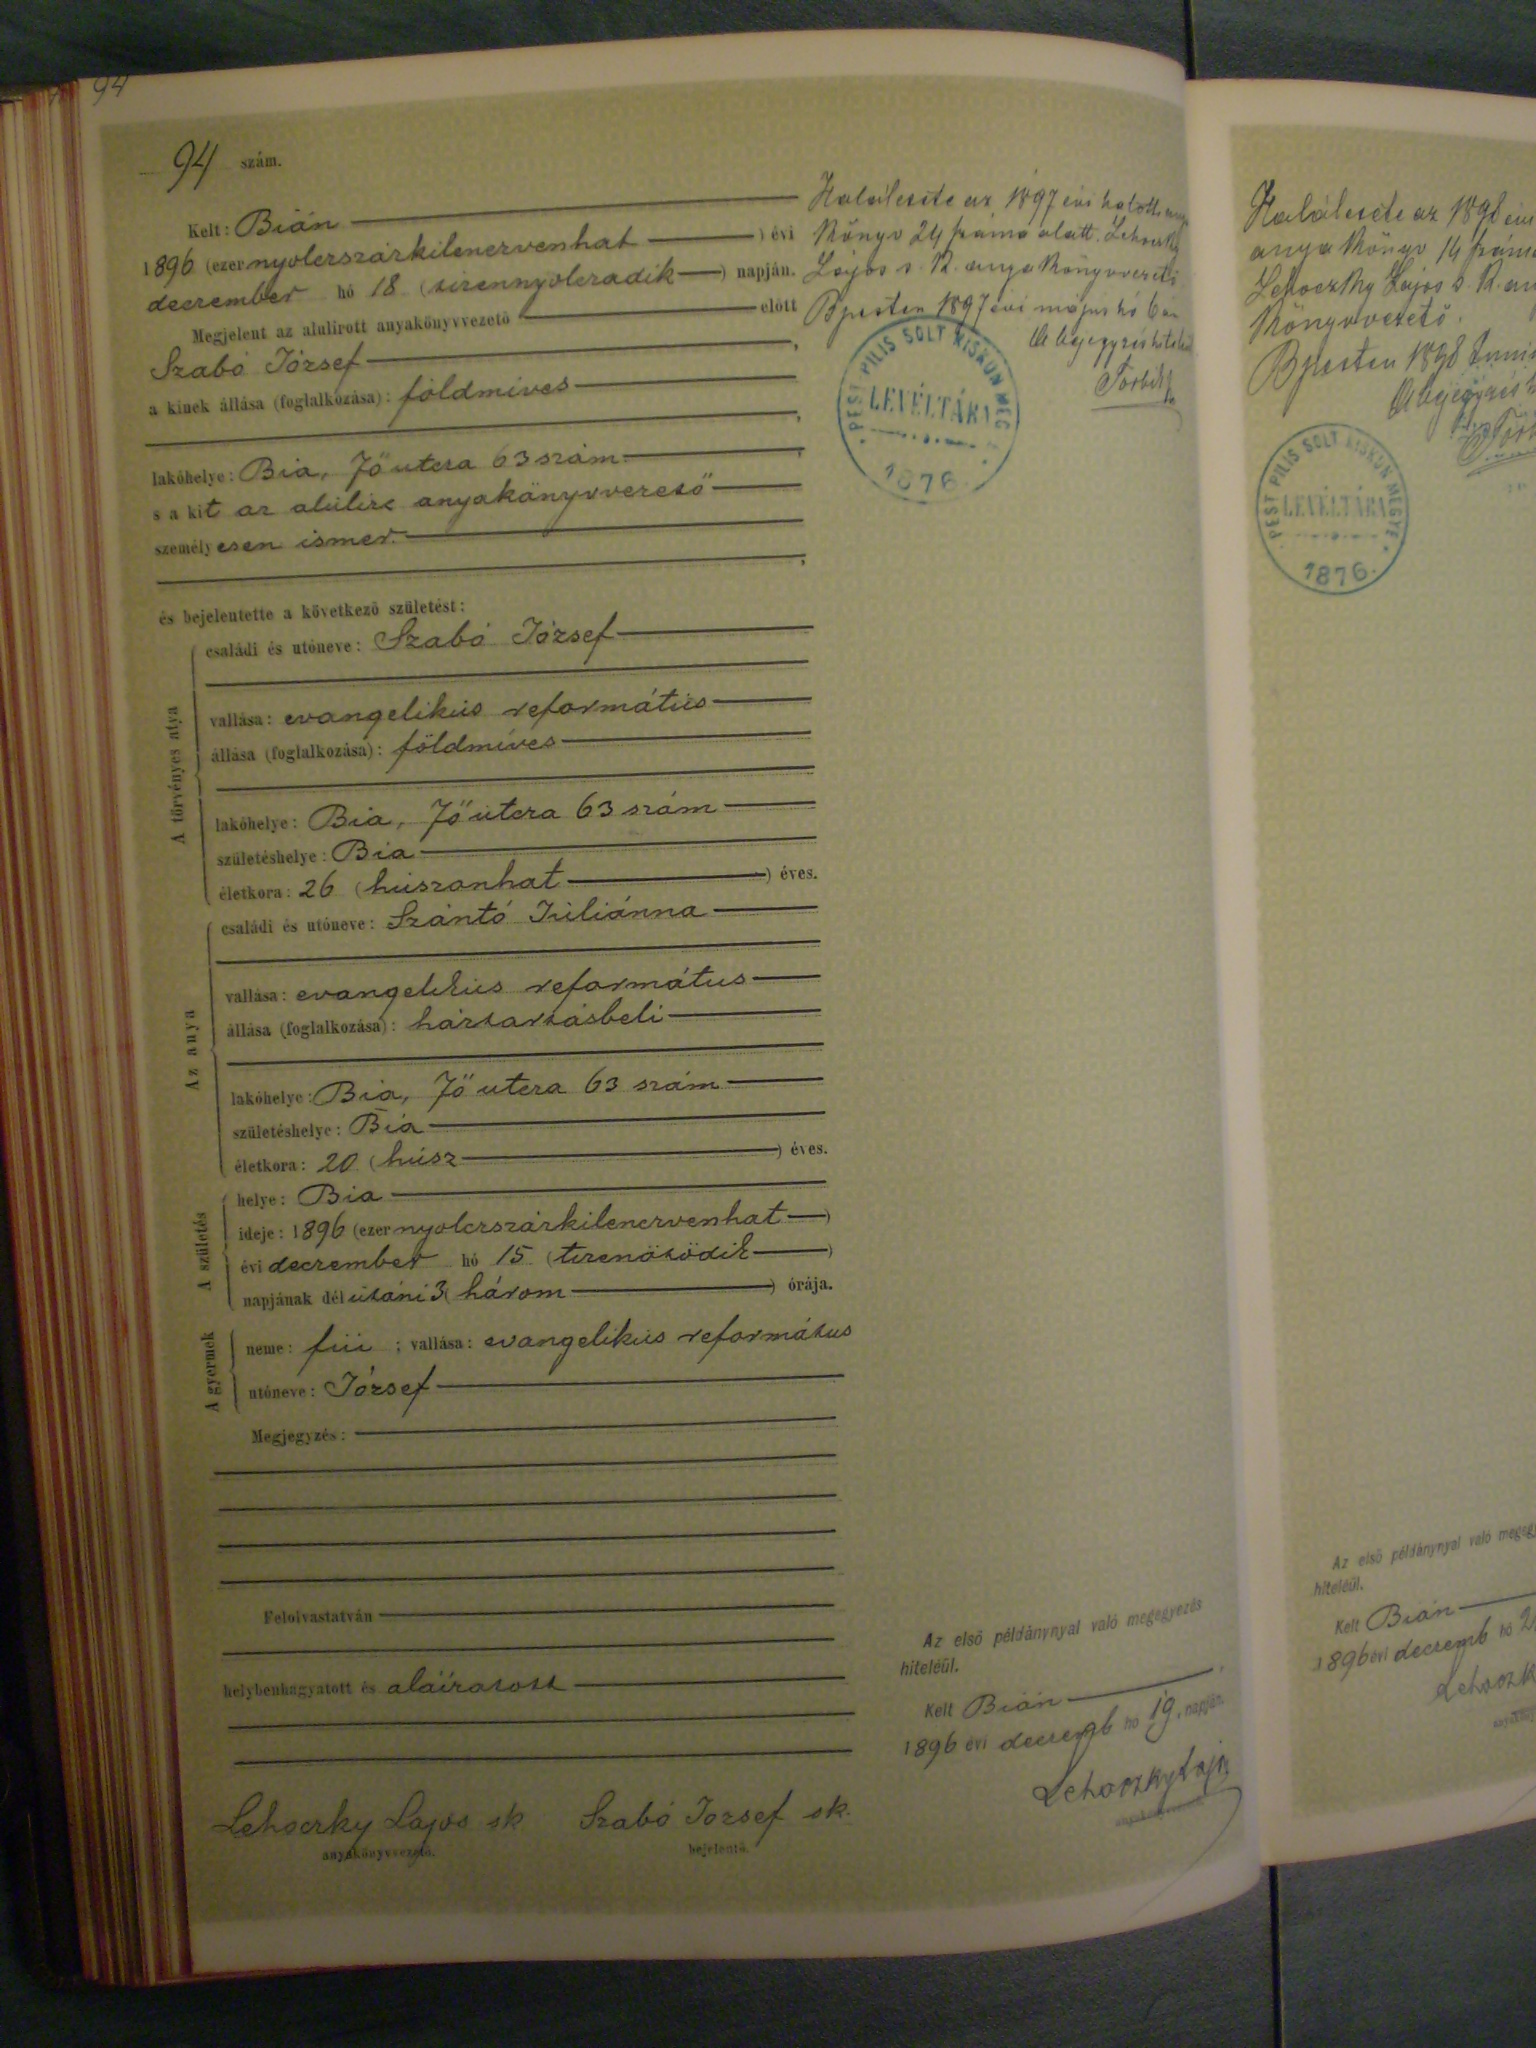 94
94 szám.
Kelt: Bián
1896 (ezer nyolczszázkilenczvenhat ) évi
deczember hó 18 (tizennyolczadik ) napján.
Megjelent az alulirott anyakönyvvezető előtt
Szabó József ,
a kinek állása (foglalkozása): földmíves
,
lakóhelye: Bia, Fő utcza 63 szám. ,
s a kit az alúlírt anyakönyvvezető
személyesen ismer.
;
és bejelentette a következő születést:
A törvényes atya
családi és utóneve: Szabó József
vallása: evangelikús református
állása (foglalkozása): földmíves
lakóhelye: Bia, Fő utcza 63 szám
születéshelye: Bia
életkora: 26 (húszonhat ) éves.
Az anya
családi és utóneve: Szántó Júliánna
vallása: evangelikús református
állása (foglalkozása): háztartásbeli
lakóhelye: Bia, Fő utcza 63 szám
születéshelye: Bia
életkora: 20 (húsz ) éves.
A születés
helye: Bia
ideje: 1896 (ezer nyolczszázkilenczvenhat )
évi deczember hó 15 (tizenötödik )
napjának délutáni 3 (három ) órája.
A gyermek
neme: fiú ; vallása: evangelikús református
utóneve: József
Megjegyzés:
Felolvastatván
helybenhagyatott és aláíratott
Lehoczky Lajos sk Szabó József sk.
anyakönyvvezető. bejelentő.
Halálesete az 1897 évi halotti
könyv 24 száma alatt. Lehoczky
Lajos s. k. anyakönyvvezető
Bpesten 1897 évi május hó 6 án
A bejegyzés hiteléül
PEST PILIS SOLT KISKUN MEG
LEVÉLTÁRA
1876.
Az első példánynyal való megegyezés
hiteléül.
Kelt Bián ,
1896 évi deczemb hó 19. napján.
Lehoczky Lajos
anyakönyvvezető.
Halálesete az 1898 évi
anya könyv 14 száma
Lehoczky Lajos s. k.
könyvvezető.
Bpesten 1898
A bejegyzés
PEST PILIS SOLT KISKUN MEGYE
LEVÉLTÁRA
1876.
Az első példánynyal való
hiteléül.
Kelt Bián
1896 évi deczemb hó
Lehoczk